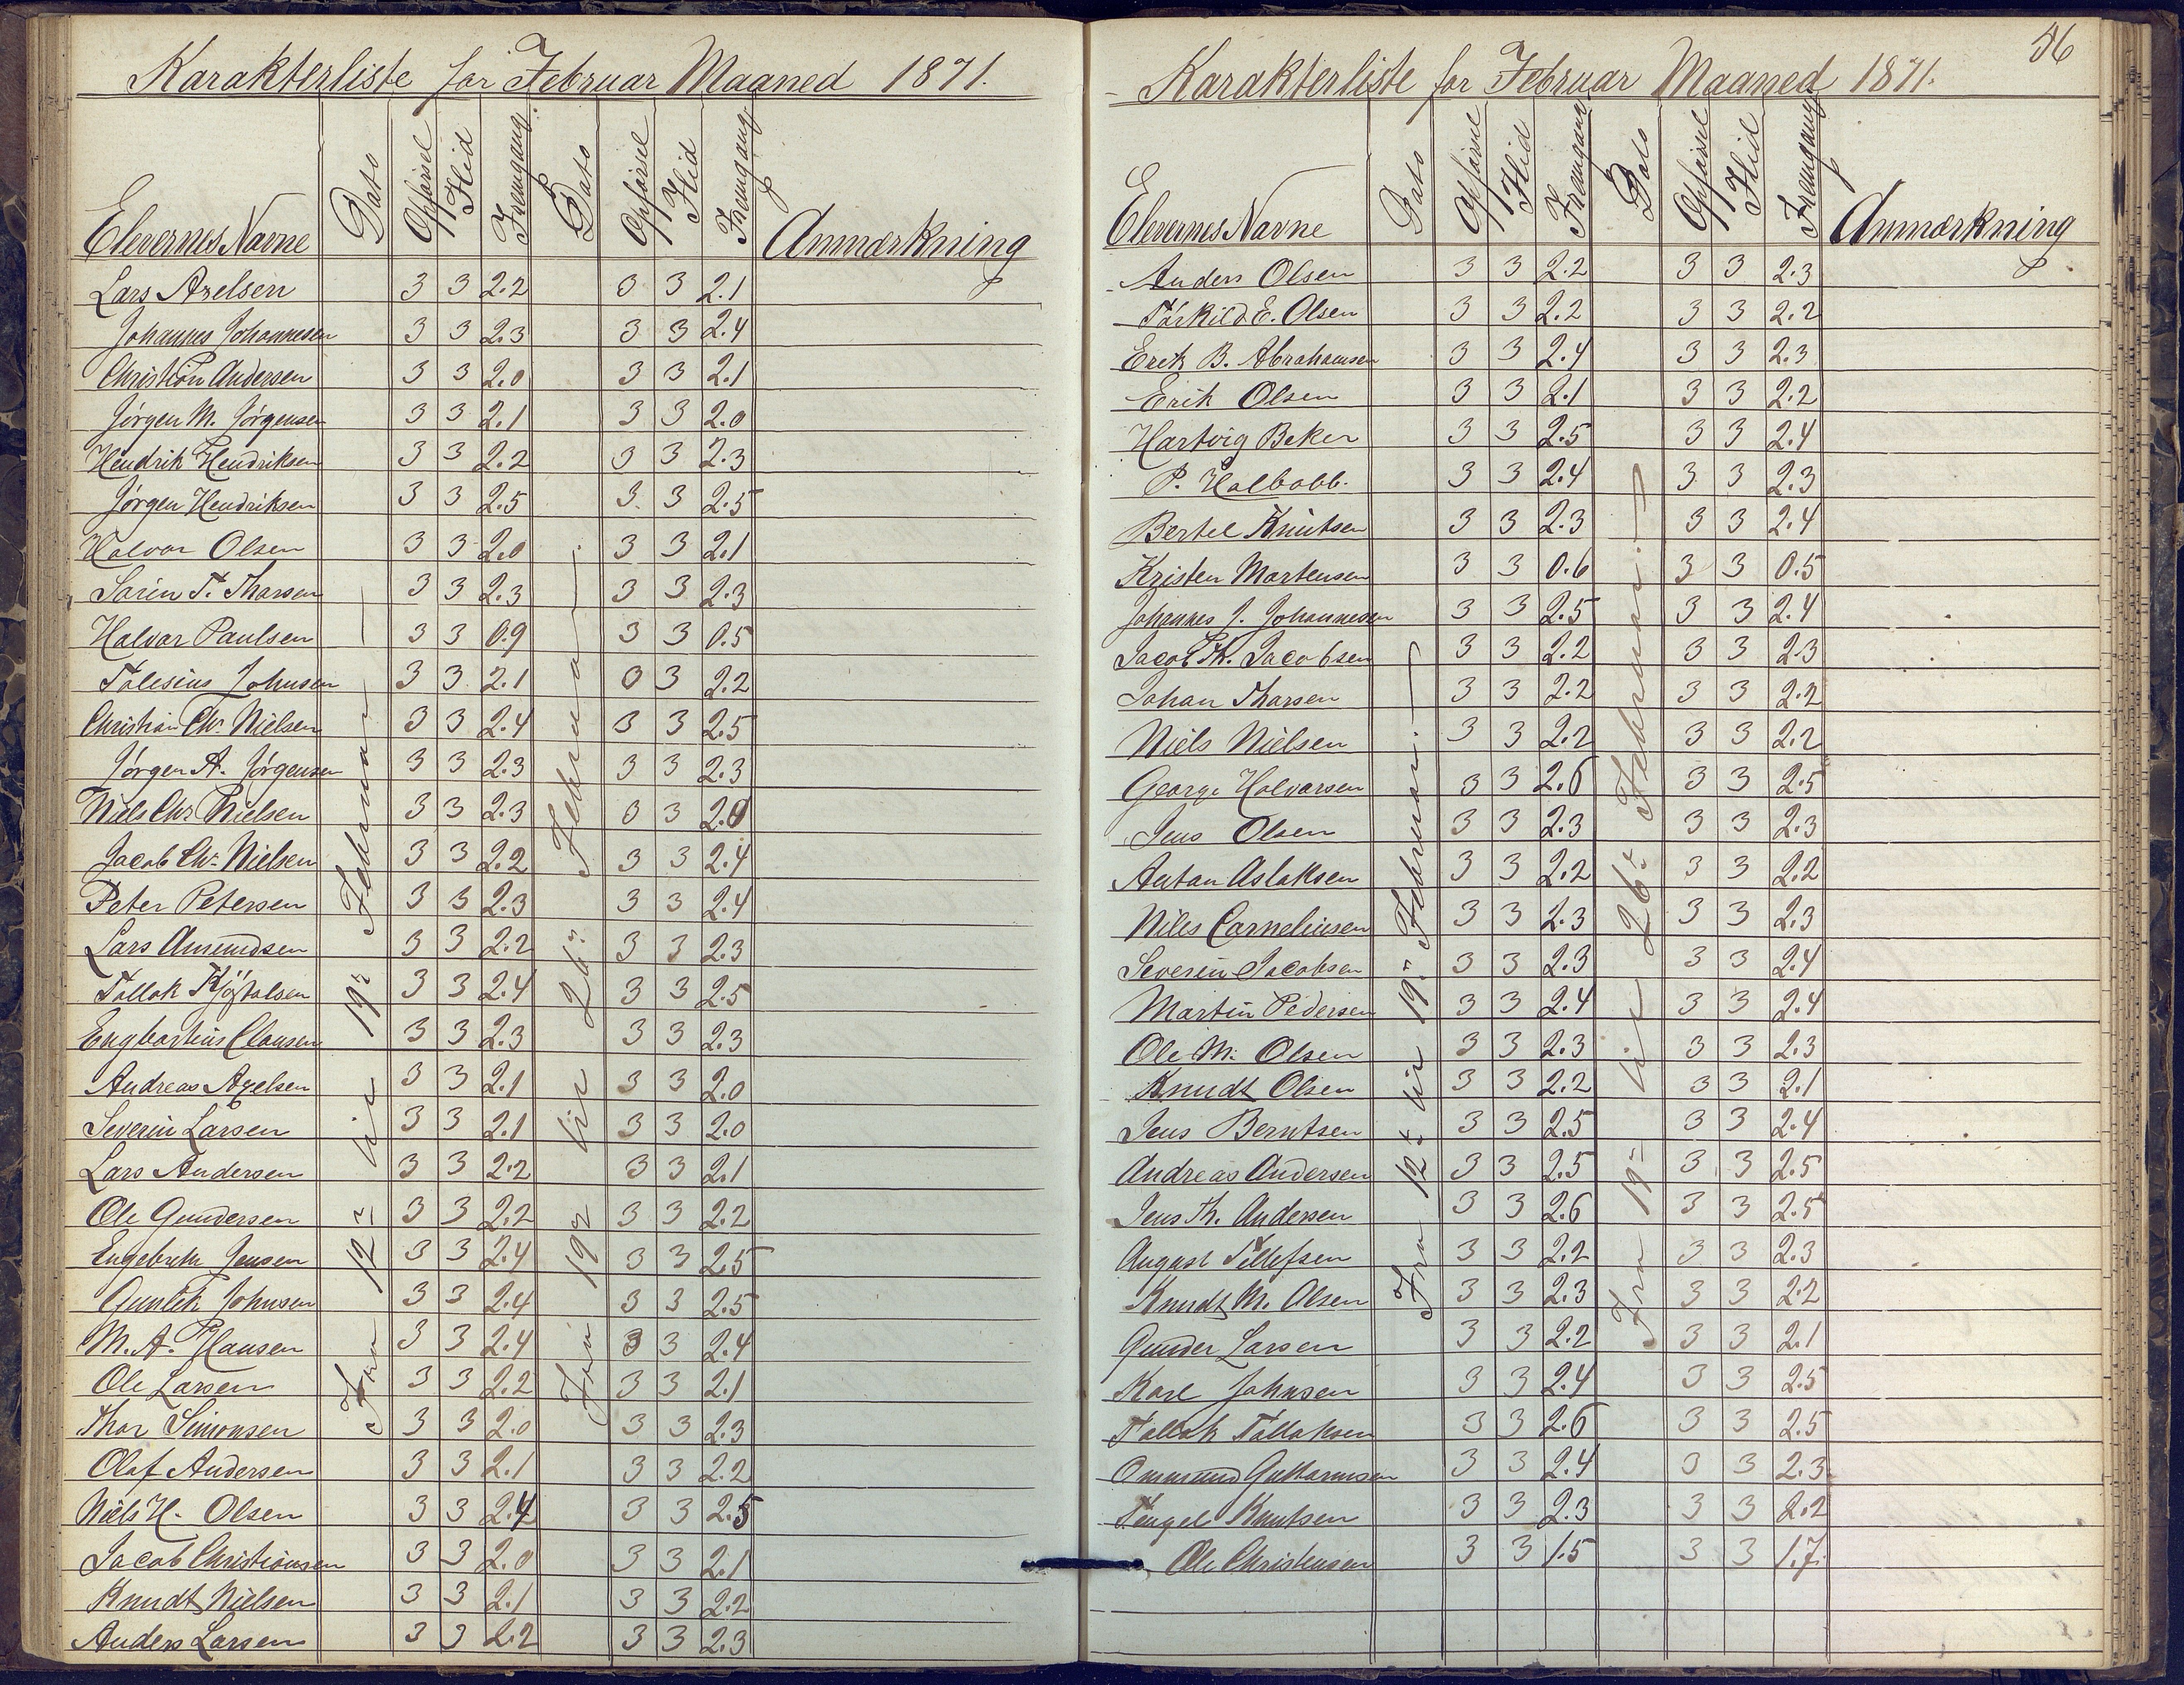 Karakterliste for Februar Maaned 1871.
Elevernes Navne Dato Opførsel Flid Fremgang Dato Opførsel Flid Fremgang Anmærkning
Fra 12te til 19de Februar
Fra 19de til 26de Februar
Lars Axelsen 3 3 2.2 3 3 2.1
Johannes Johannesen 3 3 2.3 3 3 2.4
Christian Andersen 3 3 2.0 3 3 2.1
Jørgen M. Jørgensen 3 3 2.1 3 3 2.0
Hendrik Hendriksen 3 3 2.2 3 3 2.3
Jørgen Hendriksen 3 3 2.5 3 3 2.5
Halvor Olsen 3 3 2.0 3 3 2.1
Sørin T. Tharsen 3 3 2.3 3 3 2.3
Halvar Paulsen 3 3 0.9 3 3 0.5
Tolesius Johnsen 3 3 2.1 3 3 2.2
Christian Chr. Nielsen 3 3 2.4 3 3 2.5
Jørgen A. Jørgensen 3 3 2.3 3 3 2.3
Niels Chr. Nielsen 3 3 2.3 3 3 2.0
Jacob Chr. Nielsen 3 3 2.2 3 3 2.4
Peter Petersen 3 3 2.3 3 3 2.4
Lars Amundsen 3 3 2.2 3 3 2.3
Tollak 3 3 2.4 3 3 2.5
Engbartius Clausen 3 3 2.3 3 3 2.3
Andreas Axelsen 3 3 2.1 3 3 2.0
Severin Larsen 3 3 2.1 3 3 2.0
Lars Andersen 3 3 2.2 3 3 2.1
Ole Gundersen 3 3 2.2 3 3 2.2
Engebreth Jensen 3 3 2.4 3 3 2.5
Gunlek Johnsen 3 3 2.4 3 3 2.5
M. A. Hansen 3 3 2.4 3 3 2.4
Ole Larsen 3 3 2.2 3 3 2.1
Thor Simonsen 3 3 2.0 3 3 2.3
Olaf Andersen 3 3 2.1 3 3 2.2
Niels H. Olsen 3 3 2.4 3 3 2.5
Jacob Christiansen 3 3 2.0 3 3 2.1
Knudt Nielsen 3 3 2.1 3 3 2.2
Anders Larsen 3 3 2.2 3 3 2.3
56
Karakterliste for Februar Maaned 1871.
Elevernes Navne Dato Opførsel Flid Fremgang Dato Opførsel Flid Fremgang Anmærkning
Fra 12te til 19de Februar.
Fra 19de til 26de Februar.
Anders Olsen 3 3 2.2 3 3 2.3
Tørkild E. Olsen 3 3 2.2 3 3 2.2
Erek B. Abrahamsen 3 3 2.4 3 3 2.3
Erik Olsen 3 3 2.1 3 3 2.2
Hartvig Beker 3 3 2.5 3 3 2.4
P. Kalbobb. 3 3 2.4 3 3 2.3
Bertel Knutsen 3 3 2.3 3 3 2.4
Kristen Mortensen 3 3 0.6 3 3 0.5
Johannes J. Johannesen 3 3 2.5 3 3 2.4
Jacob Th. Jacobsen 3 3 2.2 3 3 2.3
Johan Tharsen 3 3 2.2 3 3 2.2
Niels Nielsen 3 3 2.2 3 3 2.2
George Halvorsen 3 3 2.6 3 3 2.5
Jens Olsen 3 3 2.3 3 3 2.3
Antan Aslaksen 3 3 2.2 3 3 2.2
Niles Carneliusen 3 3 2.3 3 3 2.3
Severin Jacobsen 3 3 2.3 3 3 2.4
Martin Pedersen 3 3 2.4 3 3 2.4
Ole M. Olsen 3 3 2.3 3 3 2.3
Knudt Olsen 3 3 2.2 3 3 2.1
Jens Berntsen 3 3 2.5 3 3 2.4
Andreas Andersen 3 3 2.5 3 3 2.5
Jens Th. Andersen 3 3 2.6 3 3 2.5
August Tellefsen 3 3 2.2 3 3 2.3
Knudt M. Olsen 3 3 2.3 3 3 2.2
Gunder Larsen 3 3 2.2 3 3 2.1
Karl Johnsen 3 3 2.4 3 3 2.5
Tallak Tallaksen 3 3 2.6 3 3 2.5
Ommund Guttormsen 3 3 2.4 3 3 2.3
Tengel Knutsen 3 3 2.3 3 3 2.2
Ole Christensen 3 3 1.5 3 3 1.7